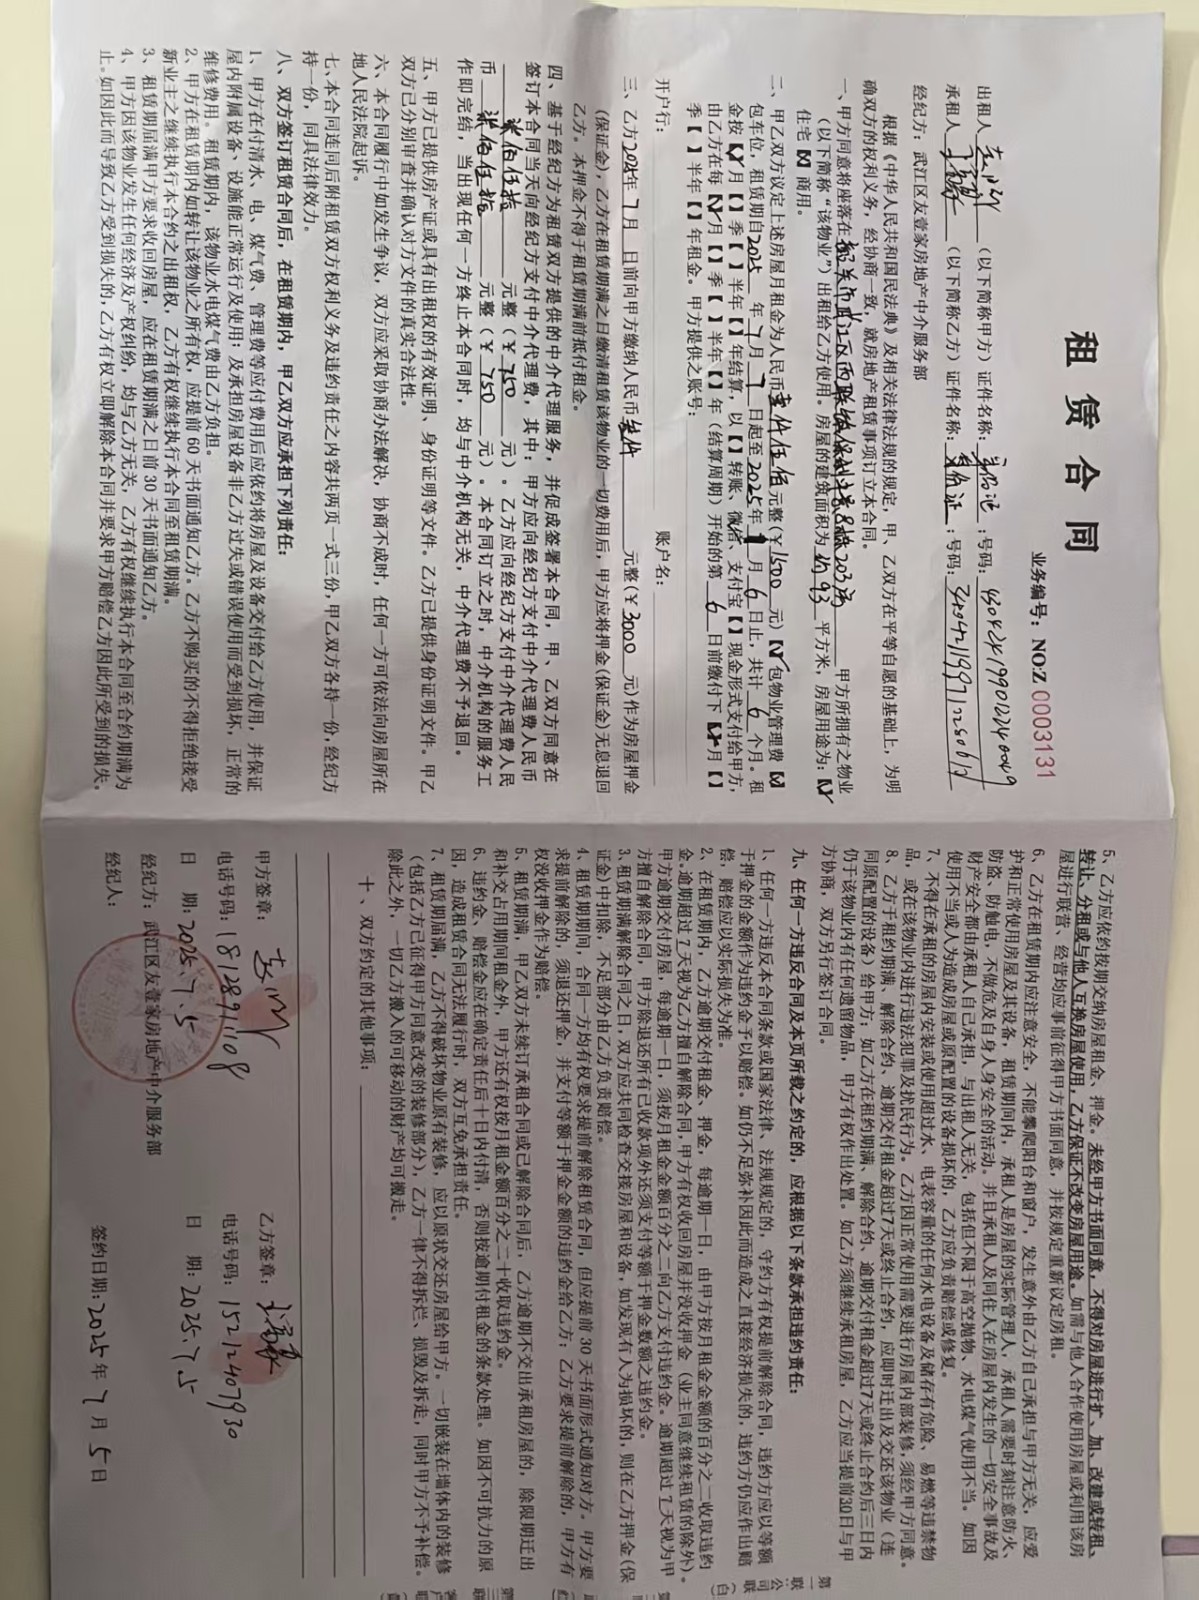 租赁合同
业务编号：NO:Z 0003131
出租人 （以下简称甲方）证件名称： ；号码：
承租人 （以下简称乙方）证件名称： ；号码：
经纪方：武江区友壹家房地产中介服务部
根据《中华人民共和国民法典》及相关法律法规的规定，甲、乙双方在平等自愿的基础上，为明
确双方的权利义务，经协商一致，就房地产租赁事项订立本合同。
一、甲方同意将座落在 韶关市武江区西联镇保利 203房 甲方所拥有之物业
（以下简称“该物业”）出租给乙方使用。房屋的建筑面积为 平方米，房屋用途为：【√】
住宅【】商用。
二、甲乙双方议定上述房屋月租金为人民币壹仟伍佰元整（￥1500元）【√】包物业管理费【】
包车位，租赁期自2025年7月7日起至2025年 月6日止，共计6个月。租
金按【√】月【】季【】半年【】年结算，以【】转账、微信、支付宝【】现金形式支付给甲方，
由乙方在每【√】月【】季【】半年【】年（结算周期）开始的第6日前缴付下【√】月【】
季【】半年【】年租金。甲方提供之账号：
开户行： 账户名：
三、乙方2025年7月 日前向甲方缴纳人民币叁仟元整（￥3000元）作为房屋押金
（保证金），乙方在租赁期满之日缴清租赁该物业的一切费用后，甲方应将押金（保证金）无息退回
乙方。本押金不得于租赁期满前抵付租金。
四、基于经纪方为租赁双方提供的中介代理服务，并促成签署本合同，甲、乙双方同意在
签订本合同当天向经纪方支付中介代理费，其中：甲方应向经纪方支付中介代理费人民币
柒佰伍拾元整（￥750元）。乙方应向经纪方支付中介代理费人民
币柒佰伍拾元整（￥750元）。本合同订立之时，中介机构的服务工
作即完结，当出现任何一方终止本合同时，均与中介机构无关，中介代理费不予退回。
五、甲方已提供房产证或具有出租权的有效证明、身份证明等文件。乙方已提供身份证明文件。甲乙
双方已分别审查并确认对方文件的真实合法性。
六、本合同履行中如发生争议，双方应采取协商办法解决，协商不成时，任何一方可依法向房屋所在
地人民法院起诉。
七、本合同连同后附租赁双方权利义务及违约责任之内容共两页一式三份，甲乙双方各持一份，经纪方
持一份，同具法律效力。
八、双方签订租赁合同后，在租赁期内，甲乙双方应承担下列责任：
1、甲方在付清水、电、煤气费、管理费等应付费用后应依约将房屋及设备交付给乙方使用，并保证
屋内附属设备、设施能正常运行及使用；及承担房屋设备非乙方过失或错误使用而受到损坏，正常的
维修费用。租赁期内，该物业水电煤气费由乙方负担。
2、甲方在租赁期内如转让该物业之所有权，应提前60天书面通知乙方。乙方不购买的不得拒绝接受
新业主之继续执行本合约之出租权，乙方有权继续执行本合同至租赁期满。
3、租赁期届满甲方要求收回房屋，应在租赁期满之日前30天书面通知乙方。
4、甲方因该物业发生任何经济及产权纠纷，均与乙方无关，乙方有权继续执行本合同至合约期满为
止。如因此而导致乙方受到损失的，乙方有权立即解除本合同并要求甲方赔偿乙方因此所受到的损失。
5、乙方应依约按期交纳房屋租金、押金。未经甲方书面同意，不得对房屋进行扩、加、改建或转租、
转让、分租或与他人互换房屋使用，乙方保证不改变房屋用途。如需与他人合作使用房屋或利用该房
屋进行联营、经营均应事前征得甲方书面同意，并按规定重新议定房租。
6、乙方在租赁期内应注意安全，不能攀爬阳台和窗户，发生意外由乙方自己承担与甲方无关，应爱
护和正常使用房屋及其设备，租赁期间内，承租人是房屋的实际管理人，承租人需要时刻注意防火、
防盗、防触电，不做危及自身人身安全的活动。并且承租人及同住人在房屋内发生的一切安全事故及
财产安全都由承租人自己承担，与出租人无关，包括但不限于高空抛物、水电煤气使用不当。如因
使用不当或人为造成房屋或原配置的设备损坏的，乙方应负责赔偿或修复。
7、不得在承租的房屋内安装或使用超过水、电表容量的任何水电设备及储存有危险、易燃等违禁物
品，或在该物业内进行违法犯罪及扰民行为。乙方因正常使用需要进行房屋内部装修，须经甲方同意。
8、乙方于租约期满、解除合约、逾期交付租金超过7天或终止合约，应即时迁出及交还该物业（连
同原配置的设备）给甲方；如乙方在租约期满、解除合约、逾期交付租金超过7天或终止合约后三日内
仍于该物业内有任何遗留物品，甲方有权作出处置。如乙方须继续承租房屋，乙方应当提前30日与甲
方协商，双方另行签订合同。
九、任何一方违反合同及本页所载之约定的，应根据以下条款承担违约责任：
1、任何一方违反本合同条款或国家法律、法规规定的，守约方有权提前解除合同，违约方应以等额
于押金的金额作为违约金予以赔偿。如仍不足弥补因此而造成之直接经济损失的，违约方仍应作出赔
偿，赔偿应以实际损失为准。
2、在租赁期内，乙方逾期交付租金、押金，每逾期一日，由甲方按月租金金额的百分之二收取违约
金。逾期超过7天视为乙方擅自解除合同，甲方有权收回房屋并没收押金（业主同意继续租赁的除外）。
甲方逾期交付房屋，每逾期一日，须按月租金金额百分之二向乙方支付违约金。逾期超过7天视为甲
方擅自解除合同，甲方除退还所有已收款项外还须支付等额于押金数额之违约金。
3、租赁期满解除合同之日，双方应共同检查交接房屋和设备，如发现有人为损坏的，则在乙方押金（保
证金）中扣除，不足部分由乙方负责赔偿。
4、租赁期期间，合同一方均有权要求提前解除租赁合同，但应提前30天书面形式通知对方。甲方要
求提前解除的，须退还押金，并支付等额于押金金额的违约金给乙方；乙方要求提前解除的，甲方有
权没收押金作为赔偿。
5、租赁期满，甲乙双方未续订承租合同或已解除合同后，乙方逾期不交出承租房屋的，除限期迁出
和补交占用期间租金外，甲方还有权按月租金额百分之二十收取违约金。
6、违约金、赔偿金应在确定责任后十日内付清，否则按逾期付租金的条款处理。如因不可抗力的原
因，造成租赁合同无法履行时，双方互免承担责任。
7、租赁期届满，乙方不得破坏物业原有装修，应以原状交还房屋给甲方。一切嵌装在墙体内的装修
（包括乙方已征得甲方同意改变的装修部分），乙方一律不得拆烂、损毁及拆走，同时甲方不予补偿。
除此之外，一切乙方搬入的可移动的财产均可搬走。
十、双方约定的其他事项：
甲方签章： 乙方签章：
电话号码：18128911108 电话号码：15212407930
日 期：2025.7.5 日 期：2025.7.5
经纪方：武江区友壹家房地产中介服务部
经纪人： 签约日期：2025年7月5日